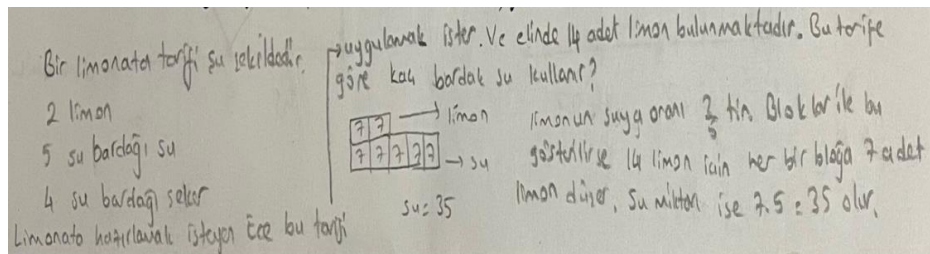 Bir limonata tarifi şu şekildedir.
2 limon
5 su bardağı su
4 su bardağı şeker
Limonata hazırlamak isteyen Ece bu tarifi
→uygulamak ister. Ve elinde 14 adet limon bulunmaktadır. Bu tarife
göre kaç bardak su kullanır?
7 7 → limon
7 7 7 7 7 → su
su = 35
limonun suya oranı 2/5 tir. Bloklar ile bu
gösterilirse 14 limon için her bir bloğa 7 adet
limon düşer. Su miktarı ise 7.5 = 35 olur.